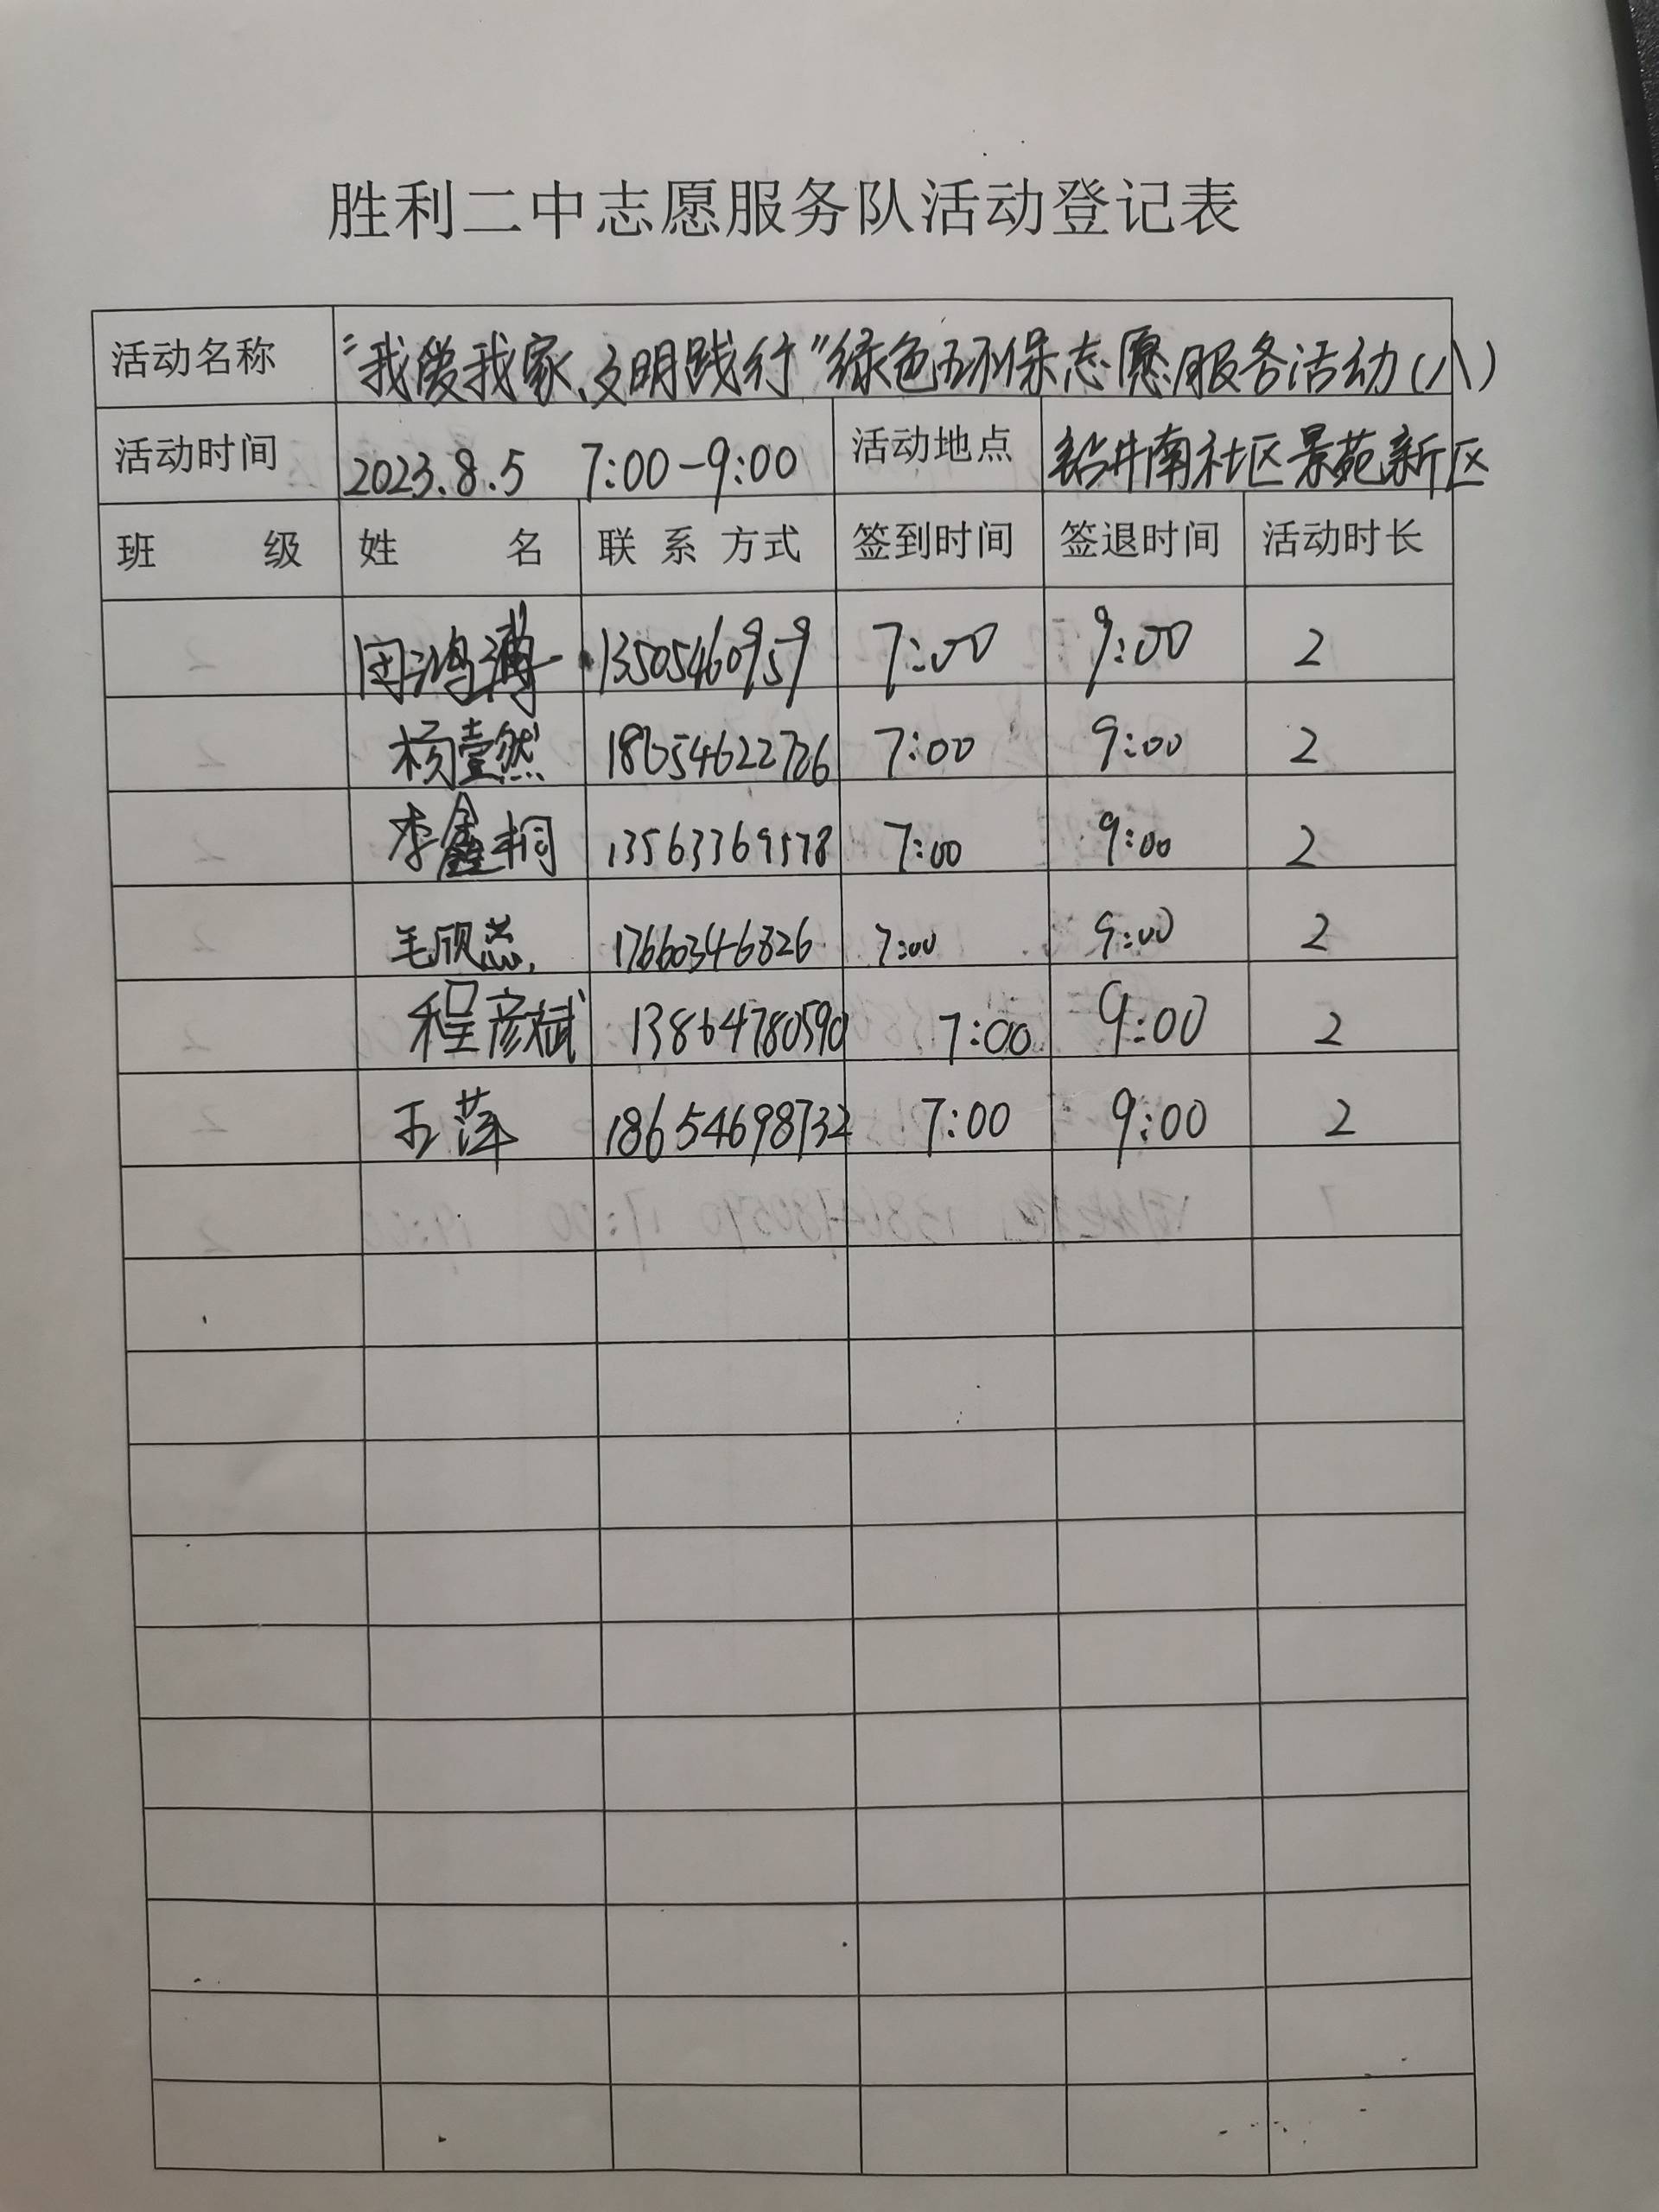 胜利二中志愿服务队活动登记表
活动名称 “我爱我家、文明践行”绿色环保志愿服务活动(八)
活动时间 2023.8.5 7:00-9:00 活动地点 钻井南社区景苑新区
班 级 姓 名 联系方式 签到时间 签退时间 活动时长
13505460959 7:00 9:00 2
杨壹然 7:00 9:00 2
李鑫桐 13563369578 7:00 9:00 2
毛欣蕊 17660346826 7:00 9:00 2
程彦斌 13864780590 7:00 9:00 2
王萍 18654698732 7:00 9:00 2